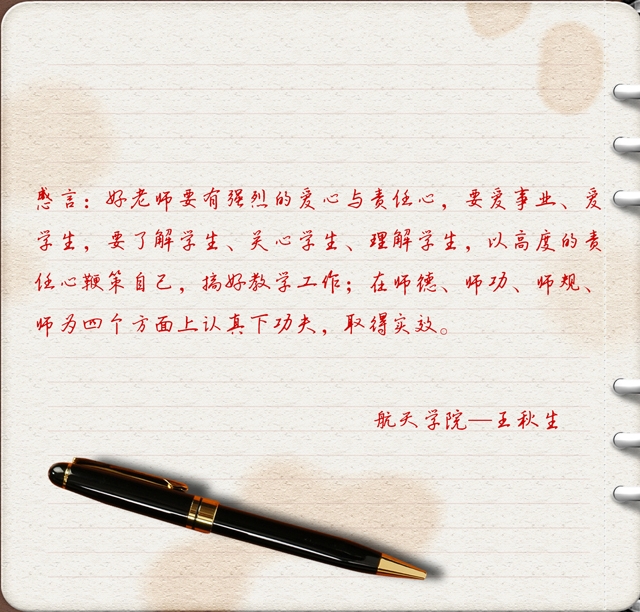 感言：好老师要有强烈的爱心与责任心，要爱事业、爱
学生，要了解学生、关心学生、理解学生，以高度的责
任心鞭策自己，搞好教学工作；在师德、师功、师规、
师为四个方面上认真下功夫，取得实效。
航天学院—王秋生